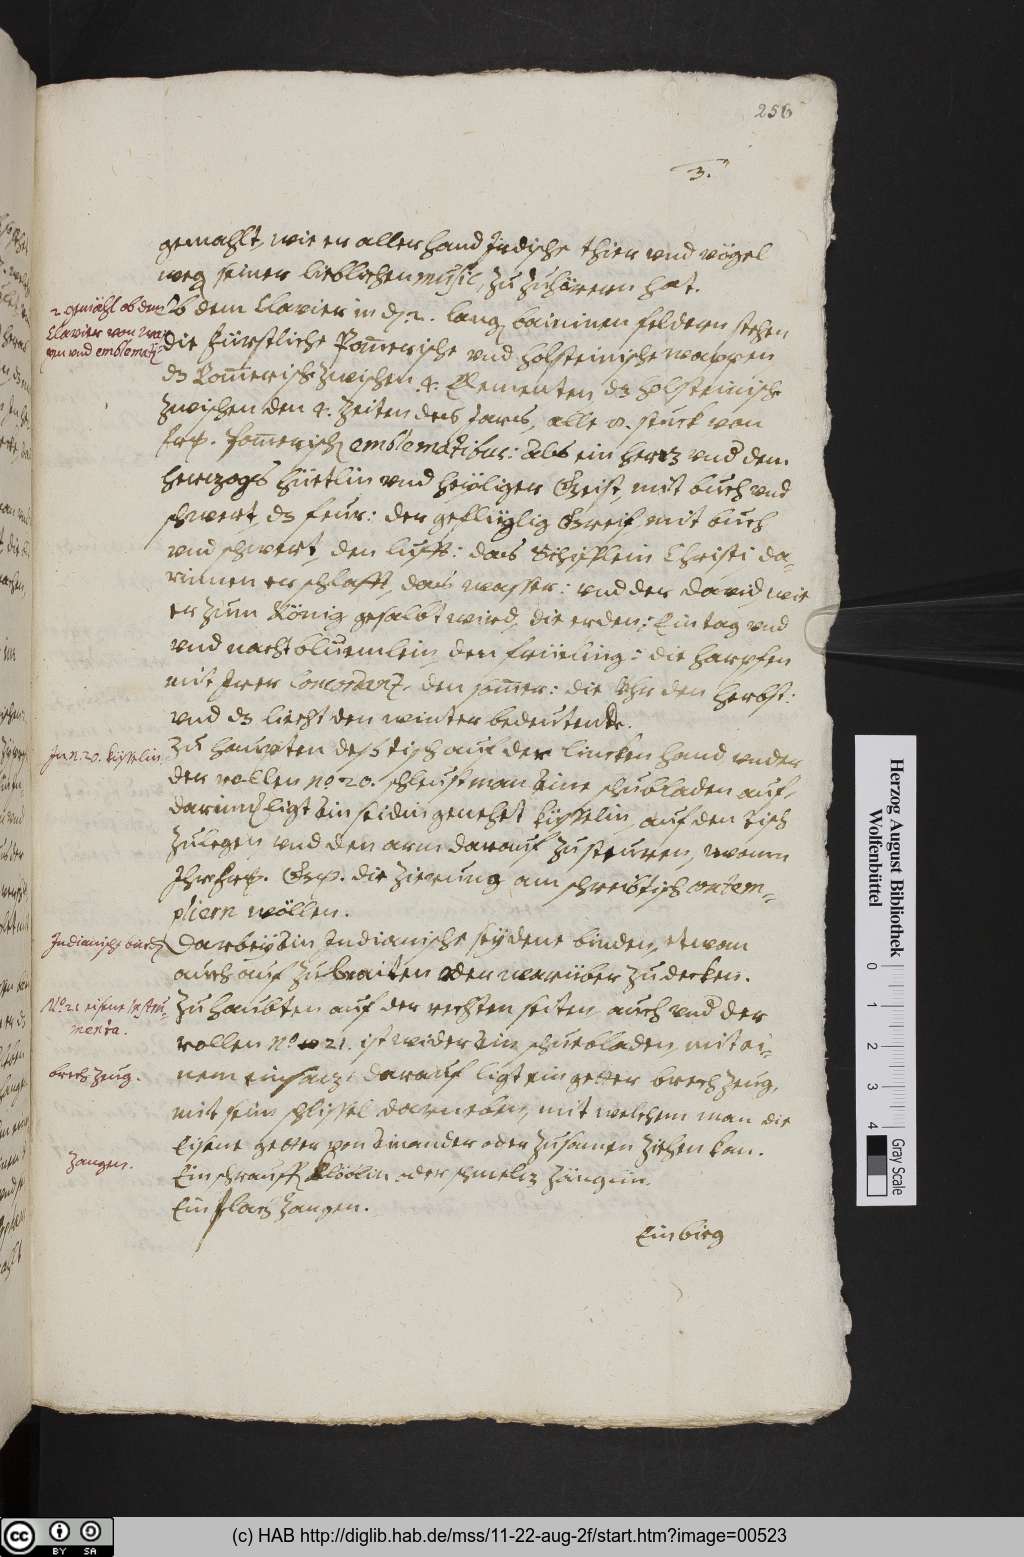 256
3.
gemahlt, wie er allerhand Irdische thier und vögel
weg seiner lieblichen music, zu zuhörern hat.
2. gemähl ob dem
Clavier von wap
pen und emblemat.
Ob dem Clavier in dz 2. lang bainenen feldern stehen
die fürstliche Pom̄erische und holsteinische wappen,
dz Pom̄erisch zwischen 4. Elementen, dz holsteinisch
zwischen den 4. Zeiten des Jars, alle 8. stuck von
frh. Pom̄erisch emblematibus: Als ein hertz und dem
hertzogs hüetlin und heyliger Geist, mit buch und
schwert, dz feur: der geflüglig Greif mit buch
und schwert, den lufft: das Schifflein Christi da-
rinnen er schlafft, das wasser: und der david, wie
er zum König gesalbt wird, die erden: Ein tag und
und nacht bluemlein, den früeling: die harpfen
mit irer Concordantz, den som̄er: die Uhr den herbst:
und dz liecht den winter bedeutende.
In N. 20. küsselin
Zu haupten deß tisch auf der lincken hand under
der rollen No 20. schleust man eine schubladen auf,
darinen ligt ein seidin genehet küsselin, auf den tisch
zulegen und den arm darauf zu steuren, wann
Ihr frh. Gn. die zierung am schreibtisch contem-
pliern wöllen.
Indianische bind
Darbey ein Indianische seydene binden, etwan
auch auf zubraiten oder warüber zudecken.
No 21 eisene instru-
menta.
Zu haubten auf der rechten seiten, auch under der
rollen No 21. ist wider ein schubladen, mit ei-
brech zeug.
nem einsatz: darauf ligt ein getter brech zeug,
mit sein schlissel darneben, mit welchem man die
Eisene getter von einander oder zusamen ziehen kan.
Zangen.
Ein schrauff Klöblin oder schmeltz zänglin.
Ein flach zangen.
Ein bieg
Herzog August Bibliothek
Wolfenbüttel
0 1 2 3 4
Gray Scale
cc BY SA
(c) HAB http://diglib.hab.de/mss/11-22-aug-2f/start.htm?image=00523